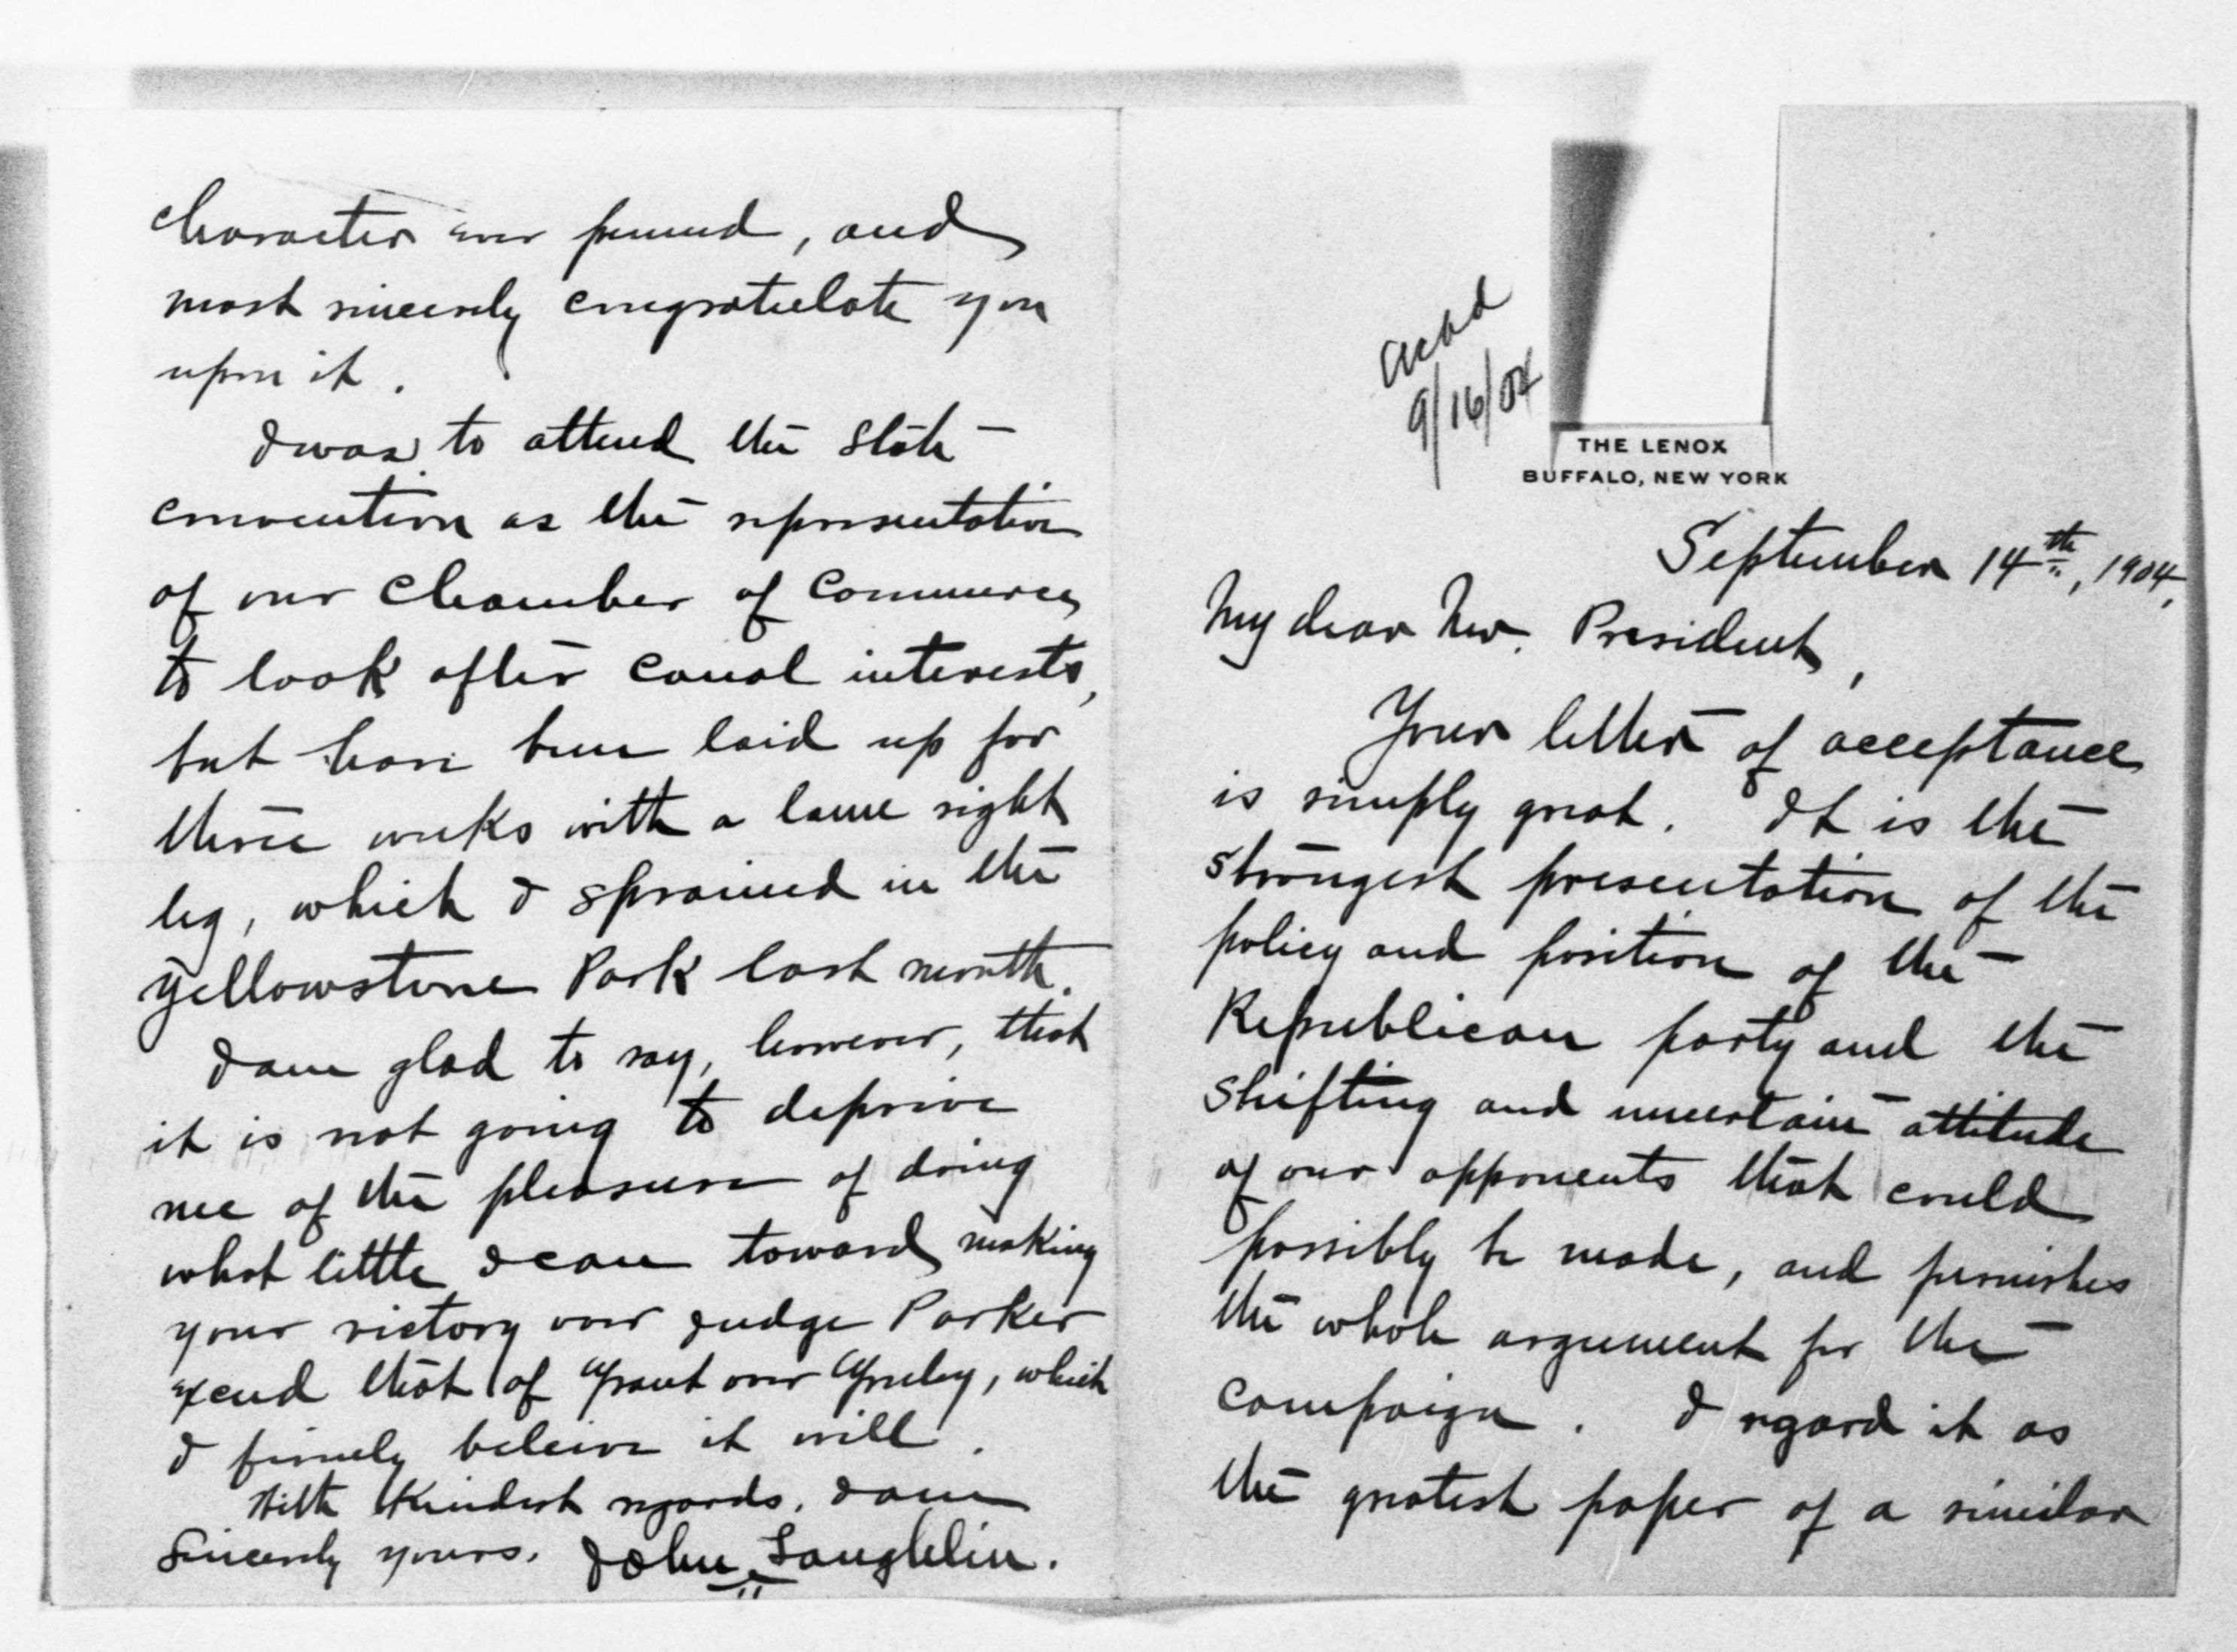 Ackd
9/16/04
THE LENOX
BUFFALO, NEW YORK
September 14th, 1904,
My dear Mr. President,
Your letter of acceptance
is simply great. It is the
strongest presentation of the
policy and position of the
Republican party and the
shifting and uncertain attitude
of our opponents that could
possibly be made, and furnishes
the whole argument for the
campaign. I regard it as
the greatest paper of a similar
character ever penned, and
most sincerely congratulate you
upon it.
I was to attend the State
convention as the representative
of our Chamber of Commerce,
to look after canal interests,
but have been laid up for
three weeks with a lame right
leg, which I sprained in the
Yellowstone Park last month.
I am glad to say, however, that
it is not going to deprive
me of the pleasure of doing
what little I can toward making
your victory over Judge Parker
xcend that of Grant over Greeley, which
I firmly beleive it will.
With kindest regards, I am
Sincerely yours. John Laughlin.